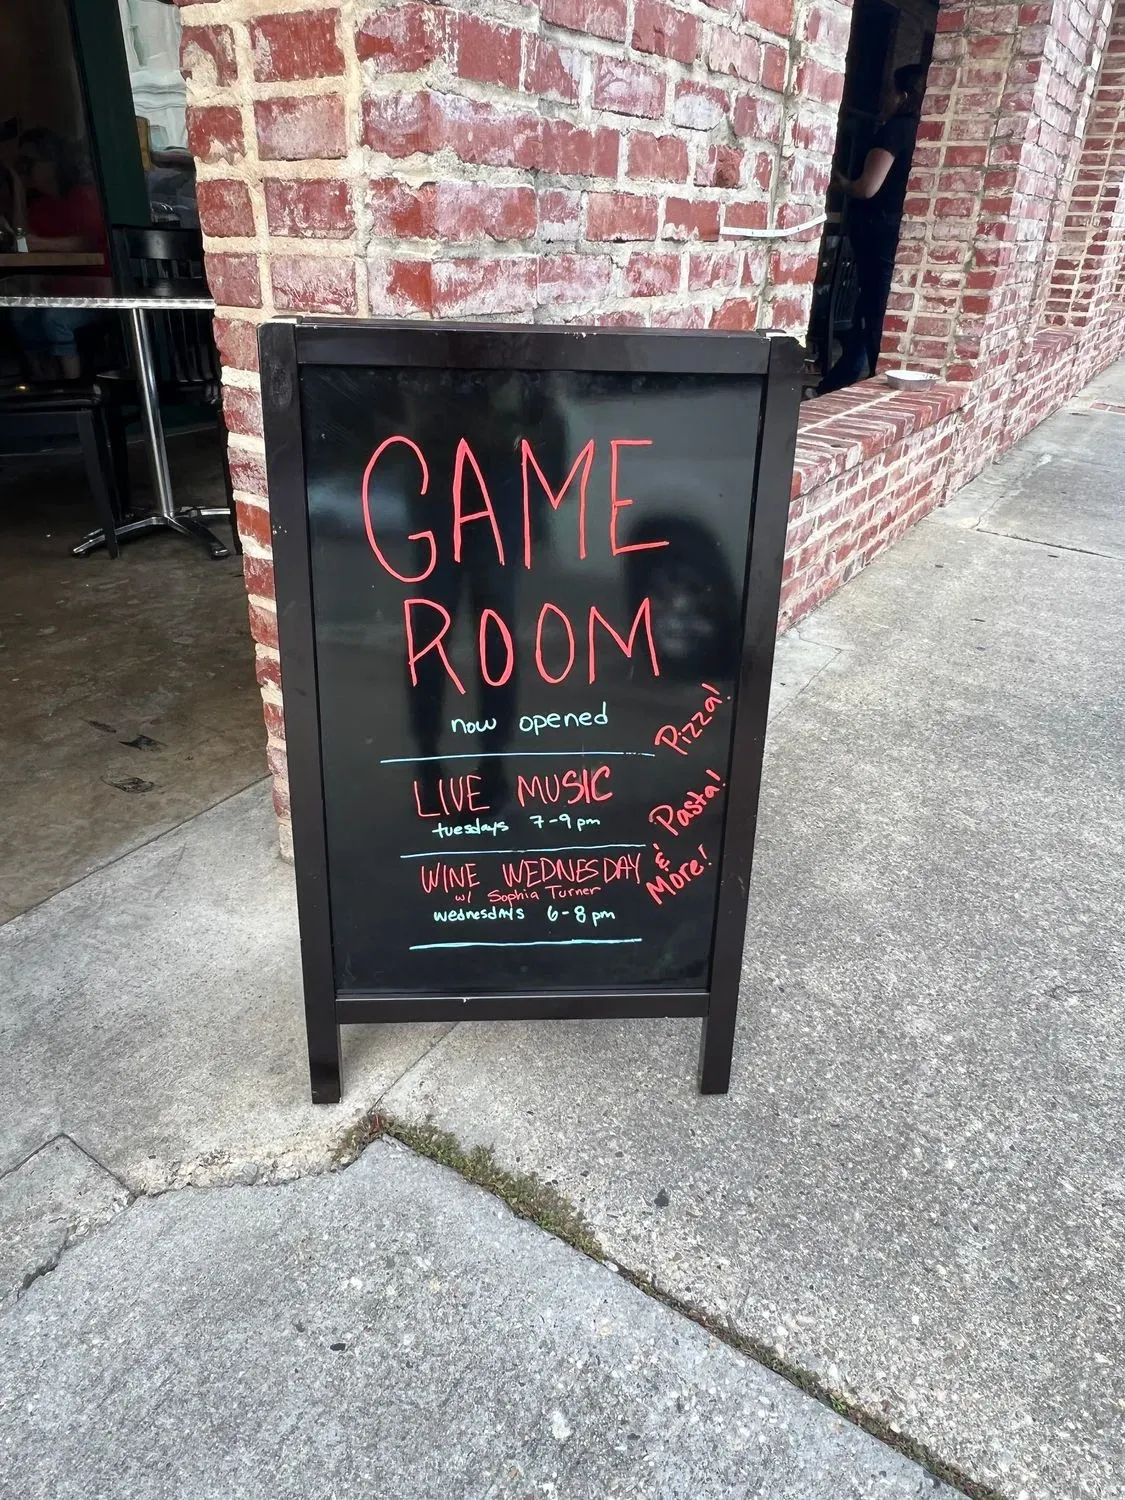 GAME
ROOM
now opened
LIVE MUSIC
tuesdays 7-9pm
WINE WEDNESDAY
w/ Sophia Turner
wednesdays 6-8pm
Pizza!
Pasta!
&
More!